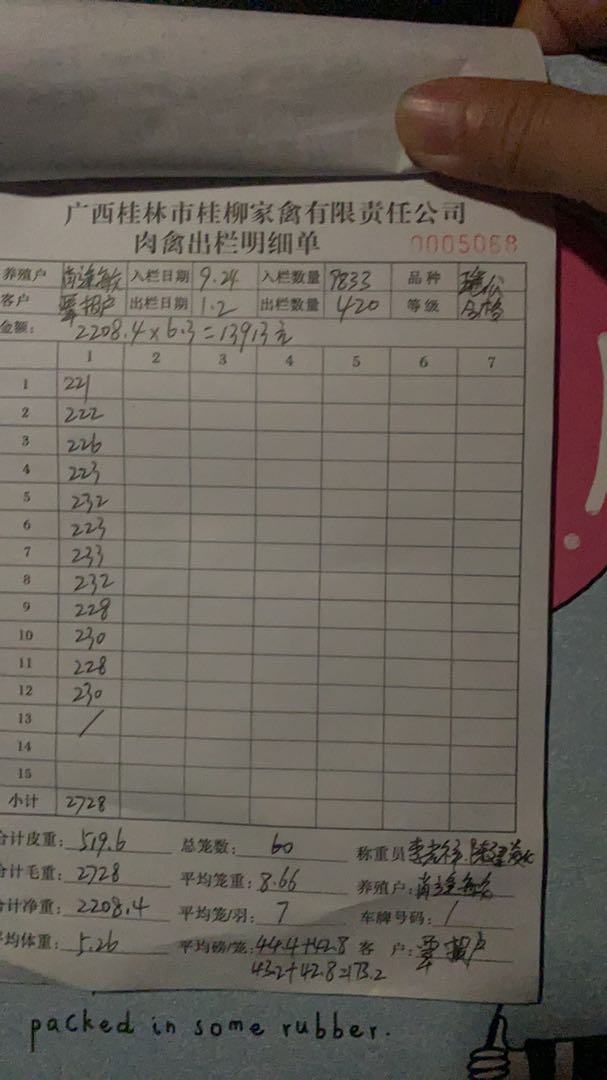 广西桂林市桂柳家禽有限责任公司
肉禽出栏明细单 0005068
养殖户 入栏日期 9.24 入栏数量 9833 品种
客户 出栏日期 1.2 出栏数量 420 等级 合格
金额: 2208.4×6.3=13913元
1 2 3 4 5 6 7
1 221
2 222
3 226
4 223
5 232
6 223
7 233
8 232
9 228
10 230
11 228
12 230
13 /
14
15
小计 2728
合计皮重: 519.6 总笼数: 60 称重员
合计毛重: 2728 平均笼重: 8.66 养殖户:
合计净重: 2208.4 平均笼/羽: 7 车牌号码: /
平均体重: 5.26 平均磅/笼: 44.4+42.8 客户:
43.2+42.8=173.2
packed in some rubber.